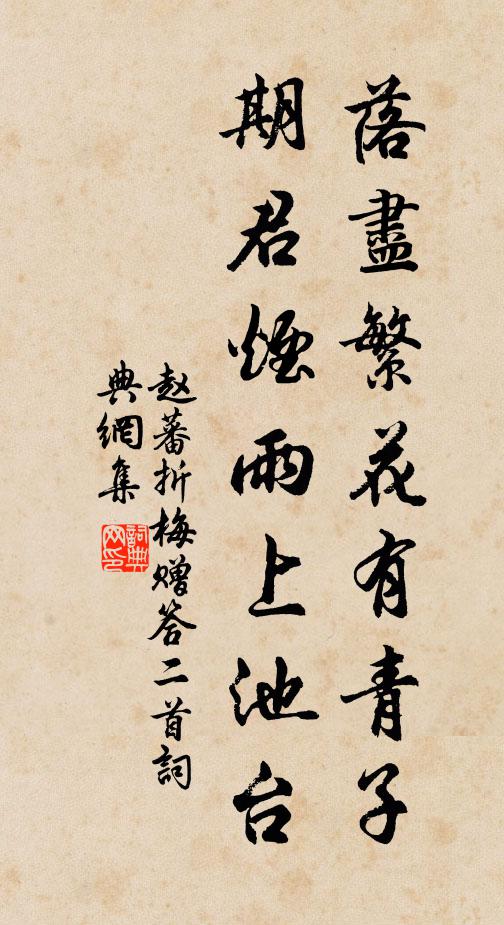 落盡繁花有青子
期君煙雨上池台
赵蕃折梅赠答二首詞
典網集
詞典網印